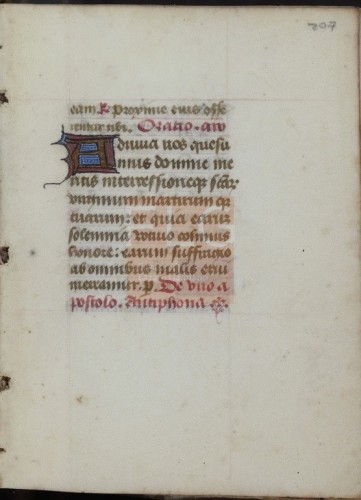 207
eam. R. Proxime eius offe
rentur tibi. Oratio.
Adiuva nos quesu
mus domine me
ritis intercessioneque
virginum martirum
tuarum: et quia earum
solemnia votivo colimus
honore: earum suffragio
ab omnibus malis erui
mereamur. p. De uno a
postolo. Antiphona